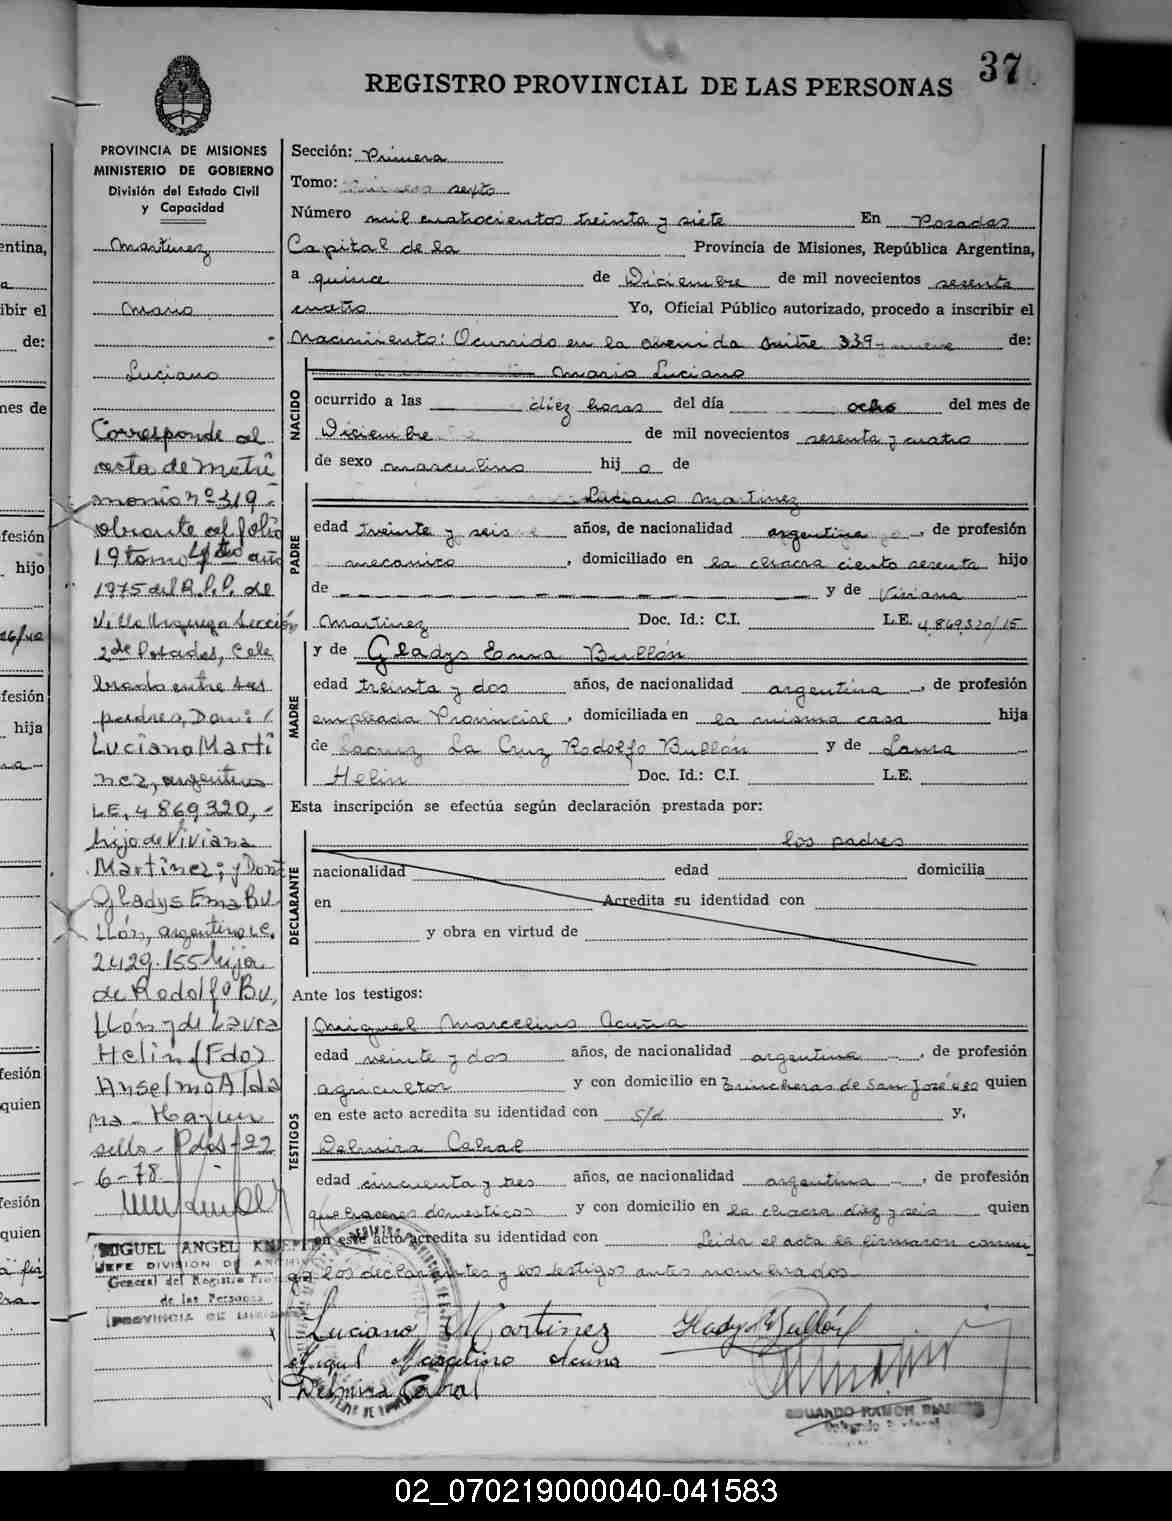 37
REGISTRO PROVINCIAL DE LAS PERSONAS
PROVINCIA DE MISIONES
MINISTERIO DE GOBIERNO
División del Estado Civil
y Capacidad
Martinez
Mario
Luciano
Corresponde al
acta de Matri
monio nº 319.-
obrante al folio
19 tomo año
1975 del R.P.P. de
Villa Urquiza Sección
2da Posadas, Cele
brado entre sus
padres, Don:
Luciano Marti
nez, argentino
LE, 4 869,320,-
hijo de Viviana
Martinez; y Doña
Gladys Ema Bu
llón, argentina L.C.
2429.155 hija
de Rodolfo Bu,
llón y de Laura
Helin (Fdo)
Anselmo Alda
na - Hay un
sello - Pdas - 22
6-78
MIGUEL ANGEL
JEFE DIVISION DE ARCHIVO
General del Registro Prov
de las Personas
PROVINCIA DE MISIONES
Sección: Primera
Tomo: sexto
Número mil cuatrocientos treinta y siete En Posadas
Capital de la Provincia de Misiones, República Argentina,
a quince de Diciembre de mil novecientos sesenta
cuatro Yo, Oficial Público autorizado, procedo a inscribir el
Nacimiento: Ocurrido en la avenida Mitre 339 de:
NACIDO
Mario Luciano
ocurrido a las diez horas del día ocho del mes de
Diciembre de mil novecientos sesenta y cuatro
de sexo masculino hij o de
PADRE
Luciano Martinez
edad treinta y seis años, de nacionalidad argentina, de profesión
mecanico, domiciliado en la chacra ciento sesenta hijo
de — — — — — — y de Viviana
Martinez Doc. Id.: C.I. L.E. 4.869.320/15
MADRE
y de Gladys Ema Bullón
edad treinta y dos años, de nacionalidad argentina, de profesión
empleada Provincial, domiciliada en la misma casa hija
de La Cruz Rodolfo Bullón y de Laura
Helin Doc. Id.: C.I. L.E.
Esta inscripción se efectúa según declaración prestada por:
DECLARANTE
los padres
nacionalidad edad domicilia
en Acredita su identidad con
y obra en virtud de
Ante los testigos:
TESTIGOS
Miguel Marcelino Acuña
edad veinte y dos años, de nacionalidad argentina, de profesión
agricultor y con domicilio en Trincheras de San José quien
en este acto acredita su identidad con s/d y,
Delmira Cabral
edad cincuenta y tres años, de nacionalidad argentina, de profesión
quehaceres domesticos y con domicilio en la chacra diez y seis quien
en este acto acredita su identidad con Leida el acta la firmaron conmi
go los declarantes y los testigos antes nombrados
Luciano Martinez Gladys E Bullón
Miguel Marcelino Acuña
Delmira Cabral
EDUARDO RAMON
02_070219000040-041583